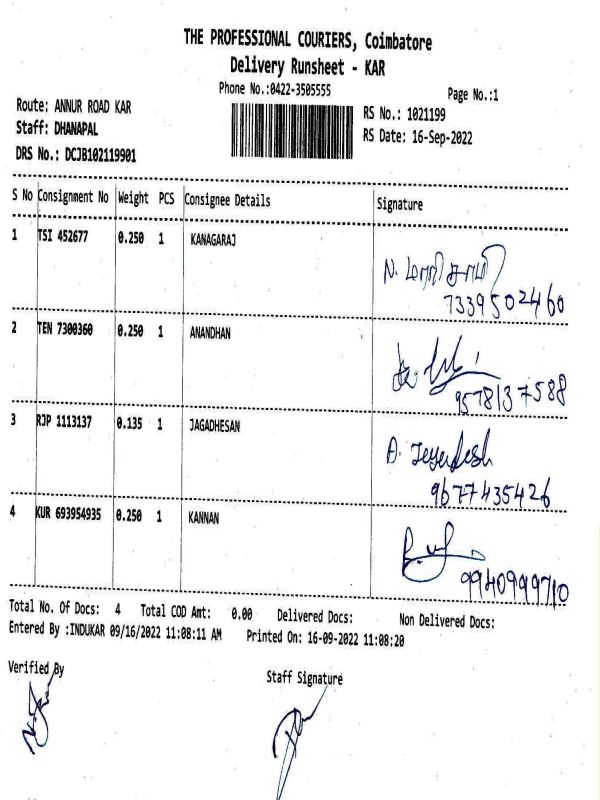 THE PROFESSIONAL COURIERS, Coimbatore
Delivery Runsheet - KAR
Phone No.:0422-3505555
Page No.:1
Route: ANNUR ROAD KAR
RS No.: 1021199
Staff: DHANAPAL
RS Date: 16-Sep-2022
DRS No.: DCJB102119901
S No Consignment No Weight PCS Consignee Details Signature
1 TSI 452677 0.250 1 KANAGARAJ
N. மாரிசாமி
7339502460
2 TEN 7300360 0.250 1 ANANDHAN
9578137588
3 RJP 1113137 0.135 1 JAGADHESAN
A.
9677435426
4 KUR 693954935 0.250 1 KANNAN
9940999710
Total No. Of Docs: 4 Total COD Amt: 0.00 Delivered Docs: Non Delivered Docs:
Entered By :INDUKAR 09/16/2022 11:08:11 AM Printed On: 16-09-2022 11:08:20
Verified By
Staff Signature